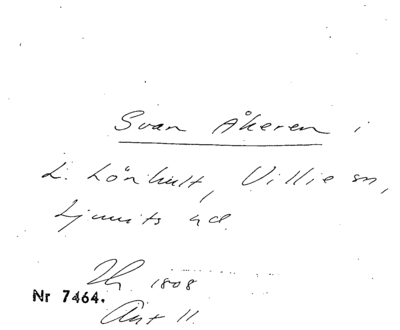 Svan Åkeren i
L. Lönhult, Villie sn,
Ljunits hd.
1808
Nr 7464.
Ant 11